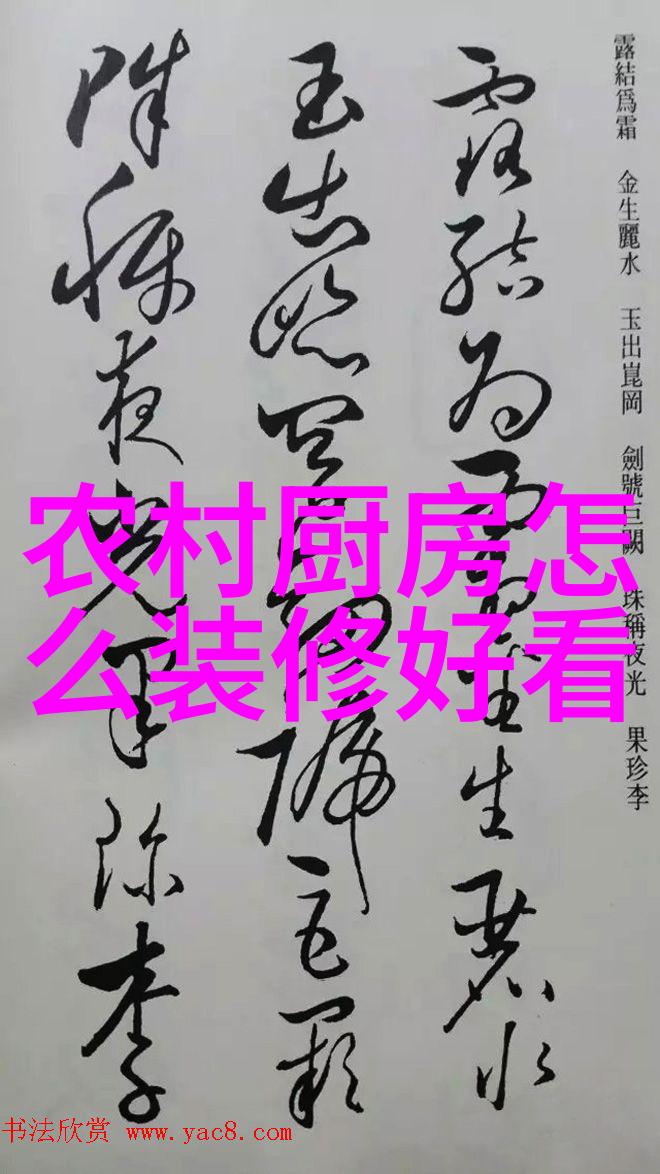 露結爲霜 金生麗水 玉出崑岡 劍號巨闕 珠稱夜光 果珍李
露結爲霜金生麗水
玉出崑岡劍號巨闕
珠稱夜光果珍李
农村厨房怎
么装修好看
书法欣赏 www.yac8.com